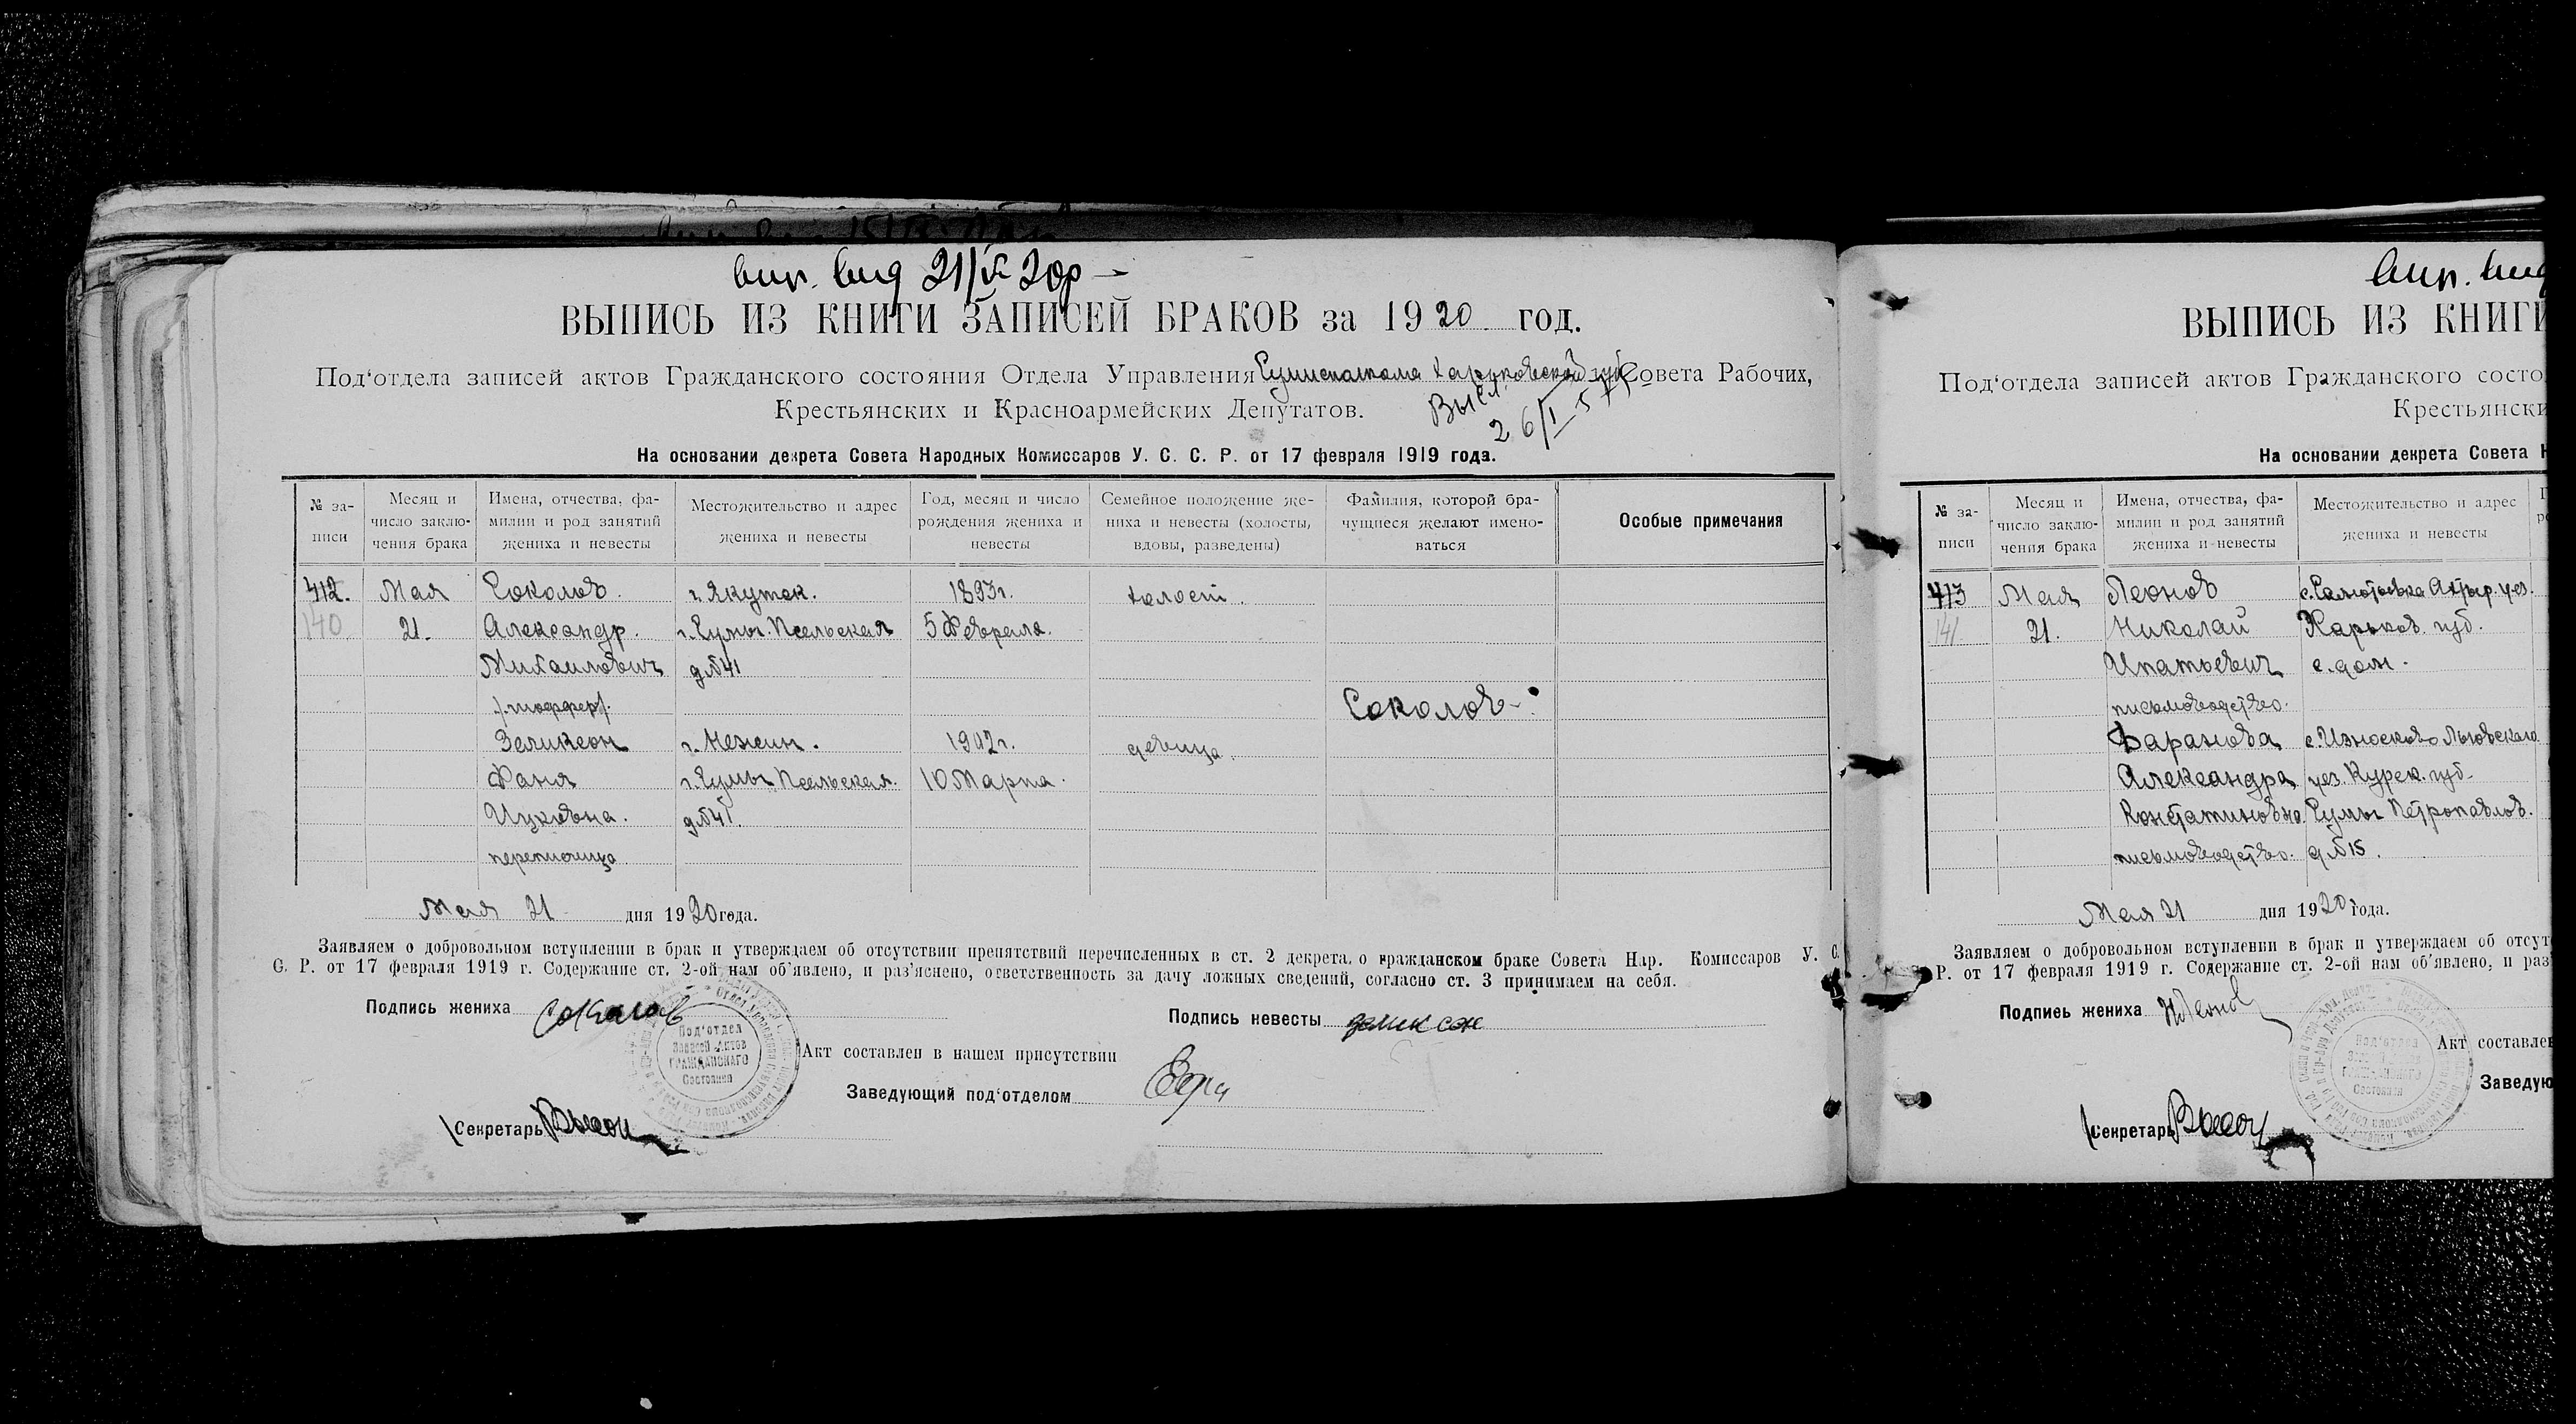 вып. вид 21/V 20р
ВЫПИСЬ ИЗ КНИГИ ЗАПИСЕЙ БРАКОВ за 1920 год.
Под‘отдела записей актов Гражданского состояния Отдела Управления Сумисполкома Харьковской губ Совета Рабочих,
Крестьянских и Красноармейских Депутатов.
Высл.
26/I-57
На основании декрета Совета Народных Комиссаров У. С. С. Р. от 17 февраля 1919 года.
№ за-писи
Месяц и число заклю-чения брака
Имена, отчества, фа-милии и род занятий жениха и невесты
Местожительство и адрес жениха и невесты
Год, месяц и число рождения жениха и невесты
Семейное положение же-ниха и невесты (холосты, вдовы, разведены)
Фамилия, которой бра-чущиеся желают имено-ваться
Особые примечания
412. Мая Соколов. г. Якутск. 1893г. холост.
140 21. Александр. г. Сумы. Псельская 5 Февраля.
Михаилович д№41
/.шоффер/.
Соколов
Зеликсон г. Нежин. 1902г. девица.
Фаня г. Сумы Псельская. 10 Марта.
Ицковна. д№41.
переписчица
Мая 21 дня 1920 года.
Заявляем о добровольном вступлении в брак и утверждаем об отсутствии препятствий перечисленных в ст. 2 декрета, о гражданском браке Совета Нар. Комиссаров У. С.
С. Р. от 17 февраля 1919 г. Содержание ст. 2-ой нам об’явлено, и раз’яснено, ответственность за дачу ложных сведений, согласно ст. 3 принимаем на себя.
Подпись жениха Соколов
Подпись невесты Зеликсон
Под‘отдел
Записей Актов
ГРАЖДАНСКАГО
Состояния
Акт составлен в нашем присутствии
Заведующий под‘отделом
Секретарь
вып. вид
ВЫПИСЬ ИЗ КНИГИ
Под‘отдела записей актов Гражданского состо
Крестьянски
На основании декрета Совета Н
№ за-писи
Месяц и число заклю-чения брака
Имена, отчества, фа-милии и род занятий жениха и невесты
Местожительство и адрес жениха и невесты
413 Мая Леонов с. Самотоевка Ахтыр. уез.
141 21. Николай Харьков. губ.
Ипатьевич с. дом.
письмоводство.
Фаранова с. Износково Льговскаго
Александра уез. Курск. губ.
Констатиновна. Сумы Петропавлов.
письмоводство. д№15.
Мая 21 дня 1920 года.
Заявляем о добровольном вступлении в брак и утверждаем об отсут
Р. от 17 февраля 1919 г. Содержание ст. 2-ой нам об’явлено, и раз
Подпись жениха НЛеонов
Акт составлен
Заведую
Секретарь